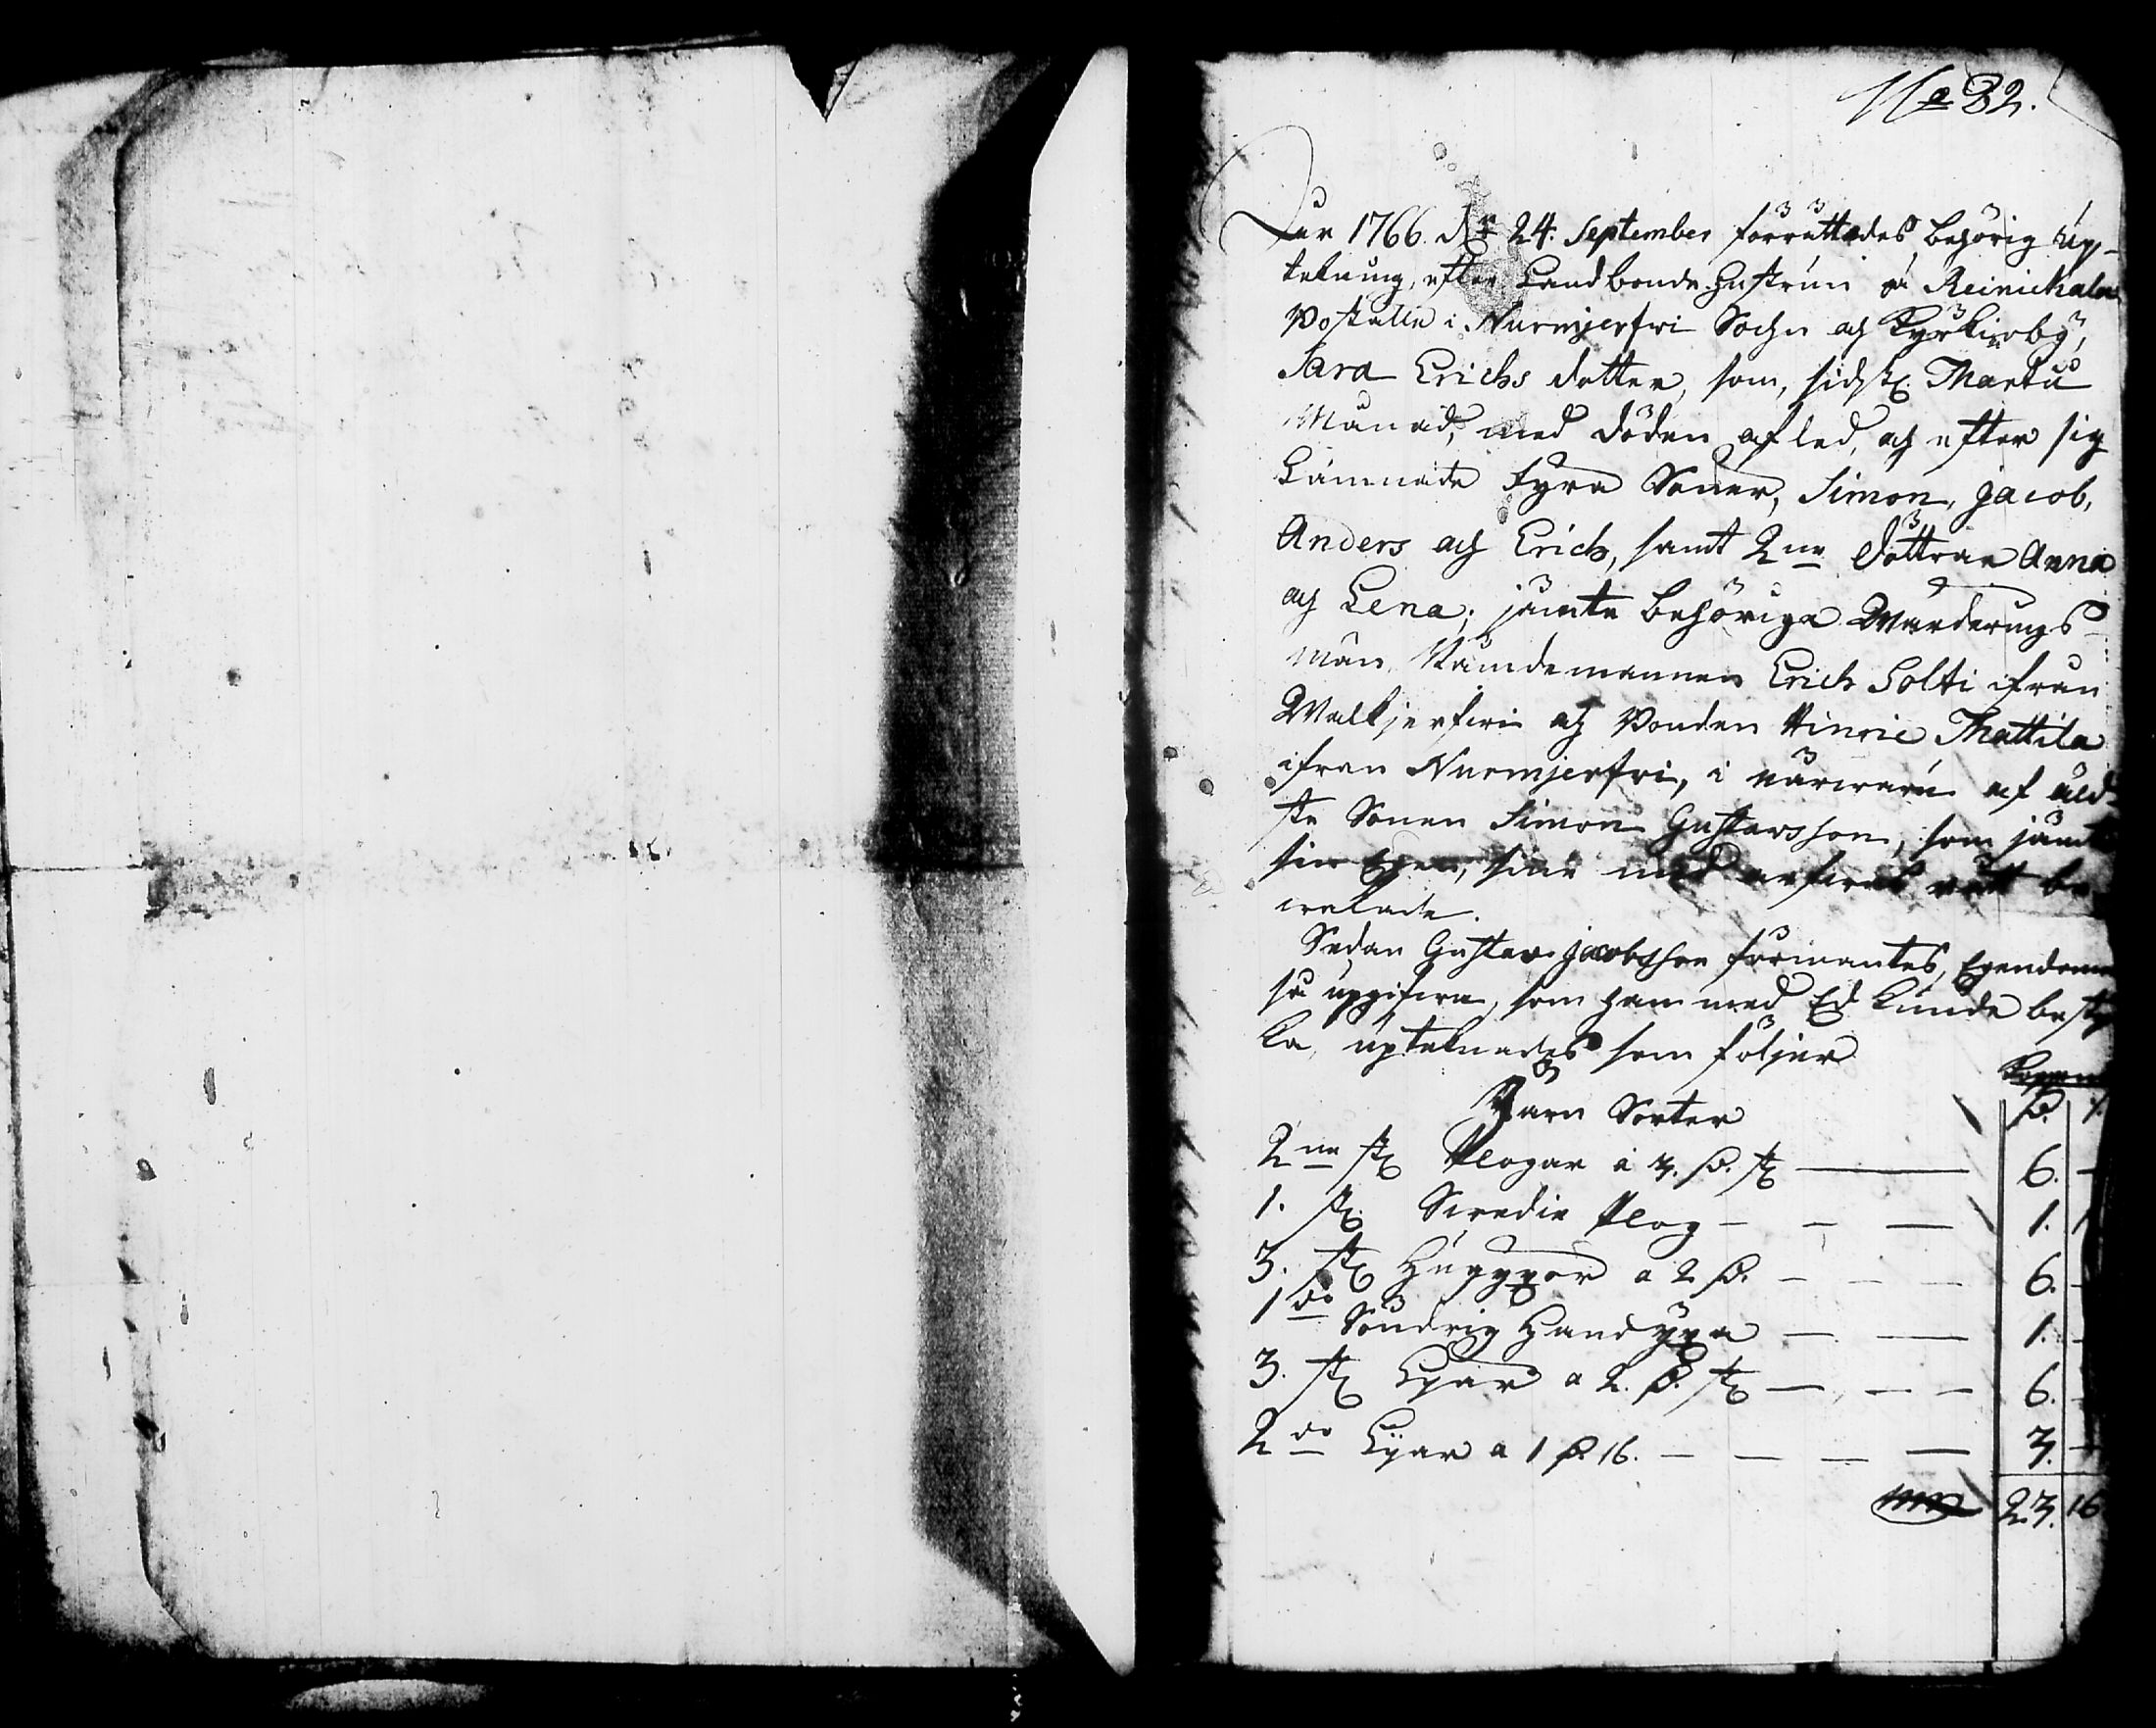 No 32.
Åhr 1766. dn 24. September förrättades behörig Up-
tekning, efter Landbonde Hustrun på Reinickala
Bostelle i Nurmjerfwi Sochn och Kyrkioby,
Sara Erichs dotter, som, sidstl. Martii
Månad, med döden afled, och efter sig
Lämnade fyra Söner, Simon, Jacob,
Anders och Erich, samt 2ne döttrar Anna
och Lena; jämte behöriga Wärderings
män, Nämdemannen Erich Solti ifrån
Walkjerfwi och Bonden Hinric Mattila
ifrån Nurmjerfwi, i närwaru af äld-
ste Sonen Simon Gustavsson, som jämte
sin Egen, sine med arfwas rätt be-
wakade.
Sedan Gustav Jacobsson förmantes, Egendomen
så upgifwa, som han med Ed kunde besty
ka, uptecknades som följer
Koppm
Järn Sorter
D.
2ne st. Plogar a 3. D. st. 6. -
1. st. Swedie Plog - - - 1.
3. st. Huggyxor a 2 D. - - - 6. -
1 do Söndrig Handyxa - - 1. -
3. st. Lijar a 2. D. st. - - - 6. -
2 do Lijar a 1 D. 16. - - - - 3. -
23. 16